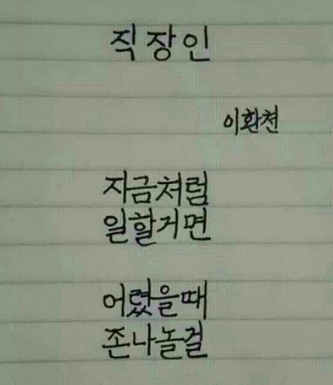 직장인
이환천
지금처럼
일할거면
어렸을때
존나놀걸